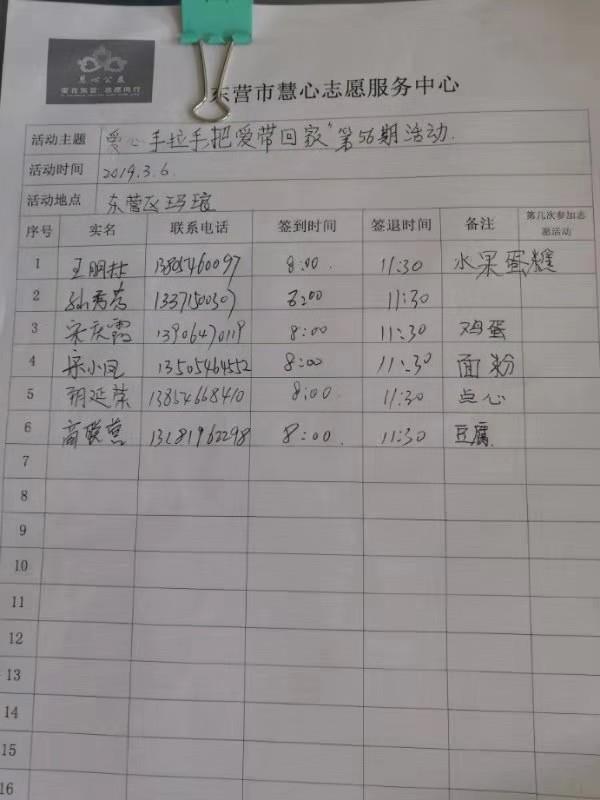 慧心公益
爱在东营 志愿同行
东营市慧心志愿服务中心
活动主题 爱心手拉手把爱带回家"第56期活动.
活动时间 2019.3.6.
活动地点 东营区玛瑄
序号 实名 联系电话 签到时间 签退时间 备注 第几次参加志愿活动
1 8:00 11:30 水果蛋糕
2 孙秀芳 8:00 11:30
3 宋庆霞 13906470119 8:00 11:30 鸡蛋
4 宋小凤 13505464552 8:00 11:30 面粉
5 胡延荣 13854668410 8:00 11:30 点心
6 13181962298 8:00 11:30 豆腐
7
8
9
10
11
12
13
14
15
16